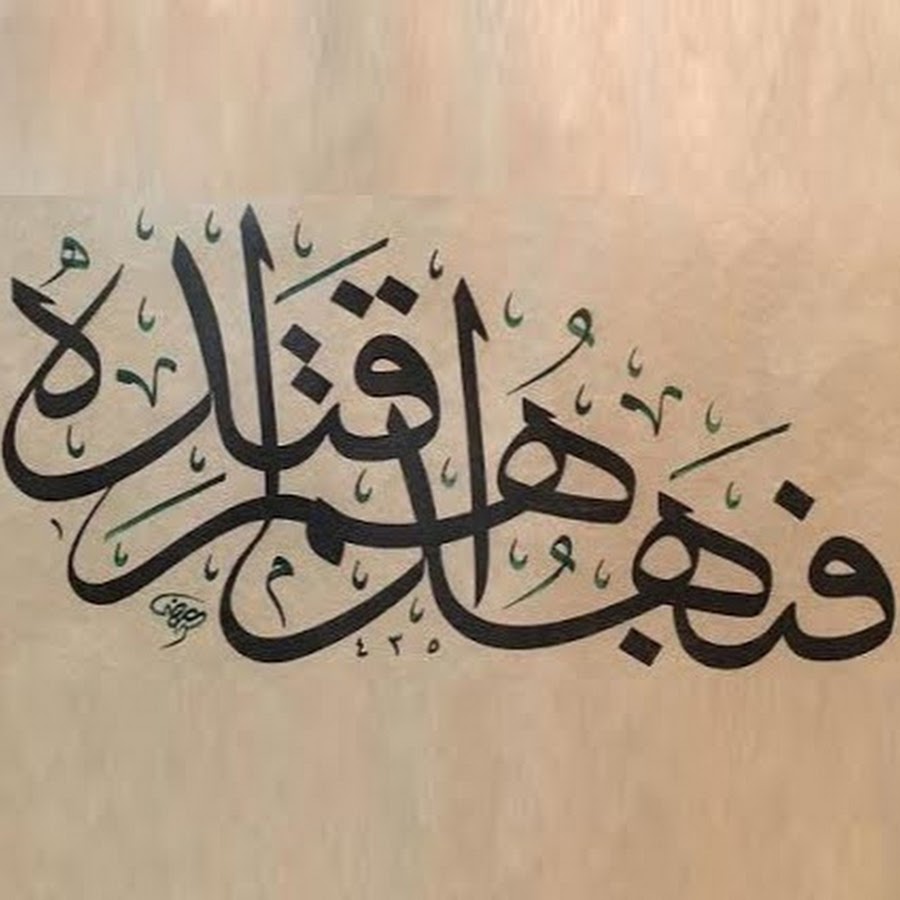 فبهداهم اقتده
١٤٣٥